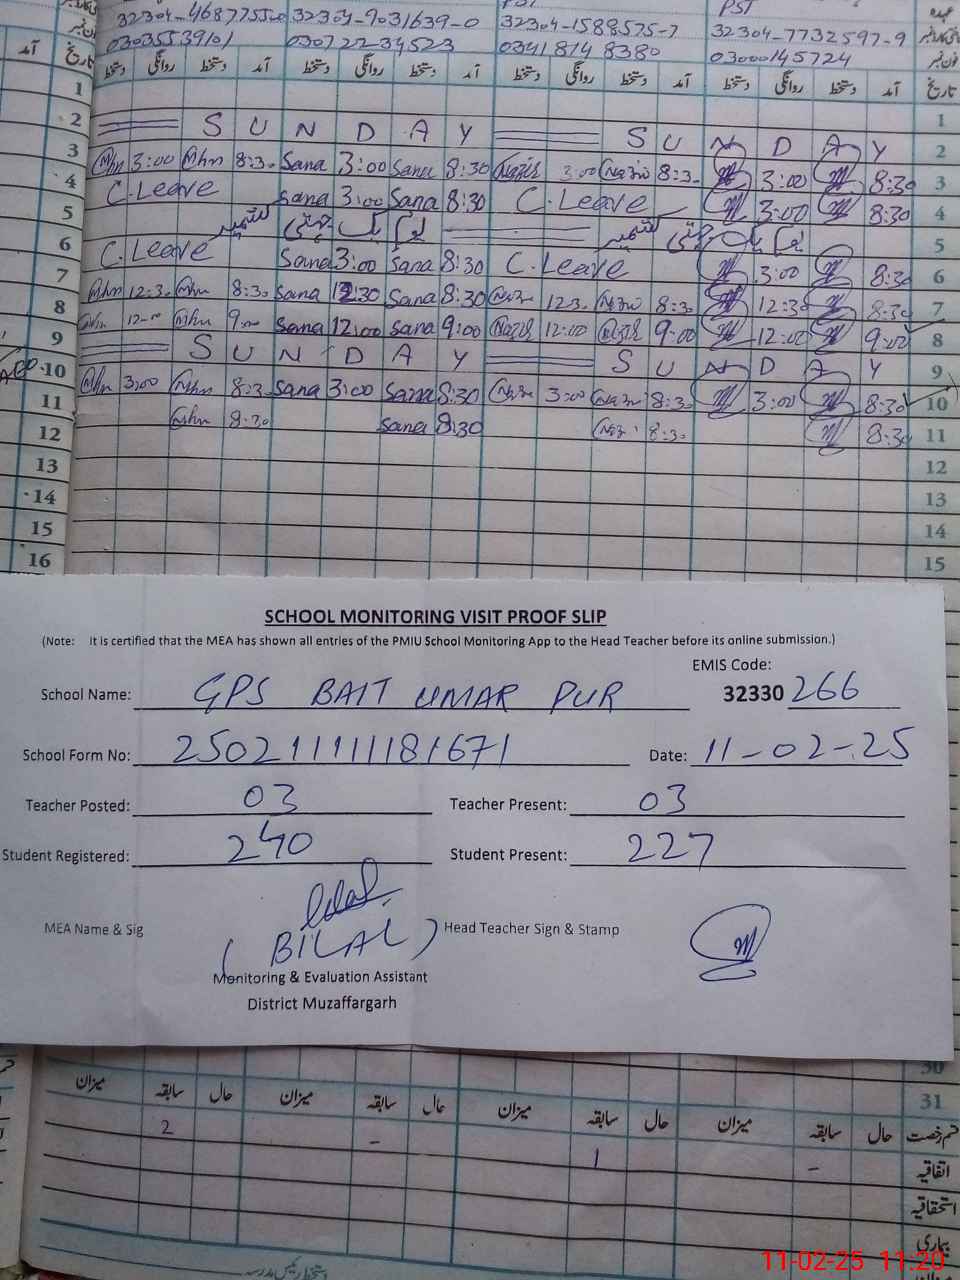 PST
32304-4687755 32304-9031639-0 32304-1588575-7 32304-7732597-9
03035539101 03072234523 03418748380 03000145724
آمد تاریخ دستخط روانگی دستخط آمد دستخط روانگی دستخط آمد دستخط روانگی دستخط آمد دستخط روانگی دستخط آمد تاریخ
1 1
2 S U N D A Y S U N D A Y 2
3 3:00 8:30 Sana 3:00 Sana 8:30 Nazir 3:00 Nazir 8:30 3:00 8:30 3
4 C.Leave Sana 3:00 Sana 8:30 C.Leave 3:00 8:30 4
5 یوم یکجہتی کشمیر یوم یکجہتی کشمیر 5
6 C.Leave Sana 3:00 Sana 8:30 C.Leave 3:00 8:30 6
7 12:30 8:30 Sana 12:30 Sana 8:30 Nazir 12:30 Nazir 8:30 12:30 8:30 7
8 12:00 9:00 Sana 12:00 Sana 9:00 Nazir 12:00 Nazir 9:00 12:00 9:00 8
9 S U N D A Y S U N D A Y 9
10 3:00 8:30 Sana 3:00 Sana 8:30 Nazir 3:00 Nazir 8:30 3:00 8:30 10
11 8:30 Sana 8:30 Nazir 8:30 8:30 11
12 12
13 13
14 14
15 15
16
SCHOOL MONITORING VISIT PROOF SLIP
(Note: It is certified that the MEA has shown all entries of the PMIU School Monitoring App to the Head Teacher before its online submission.)
EMIS Code:
School Name: GPS BAIT UMAR PUR 32330 266
School Form No: 250211111181671 Date: 11-02-25
Teacher Posted: 03 Teacher Present: 03
Student Registered: 240 Student Present: 227
MEA Name & Sig (BILAL) Head Teacher Sign & Stamp
Monitoring & Evaluation Assistant
District Muzaffargarh
30
31
قسم رخصت حال سابقہ میزان حال سابقہ میزان حال سابقہ میزان حال سابقہ میزان
اتفاقیہ - 1 - 2
استحقاقیہ
بیماری
11-02-25 11:20